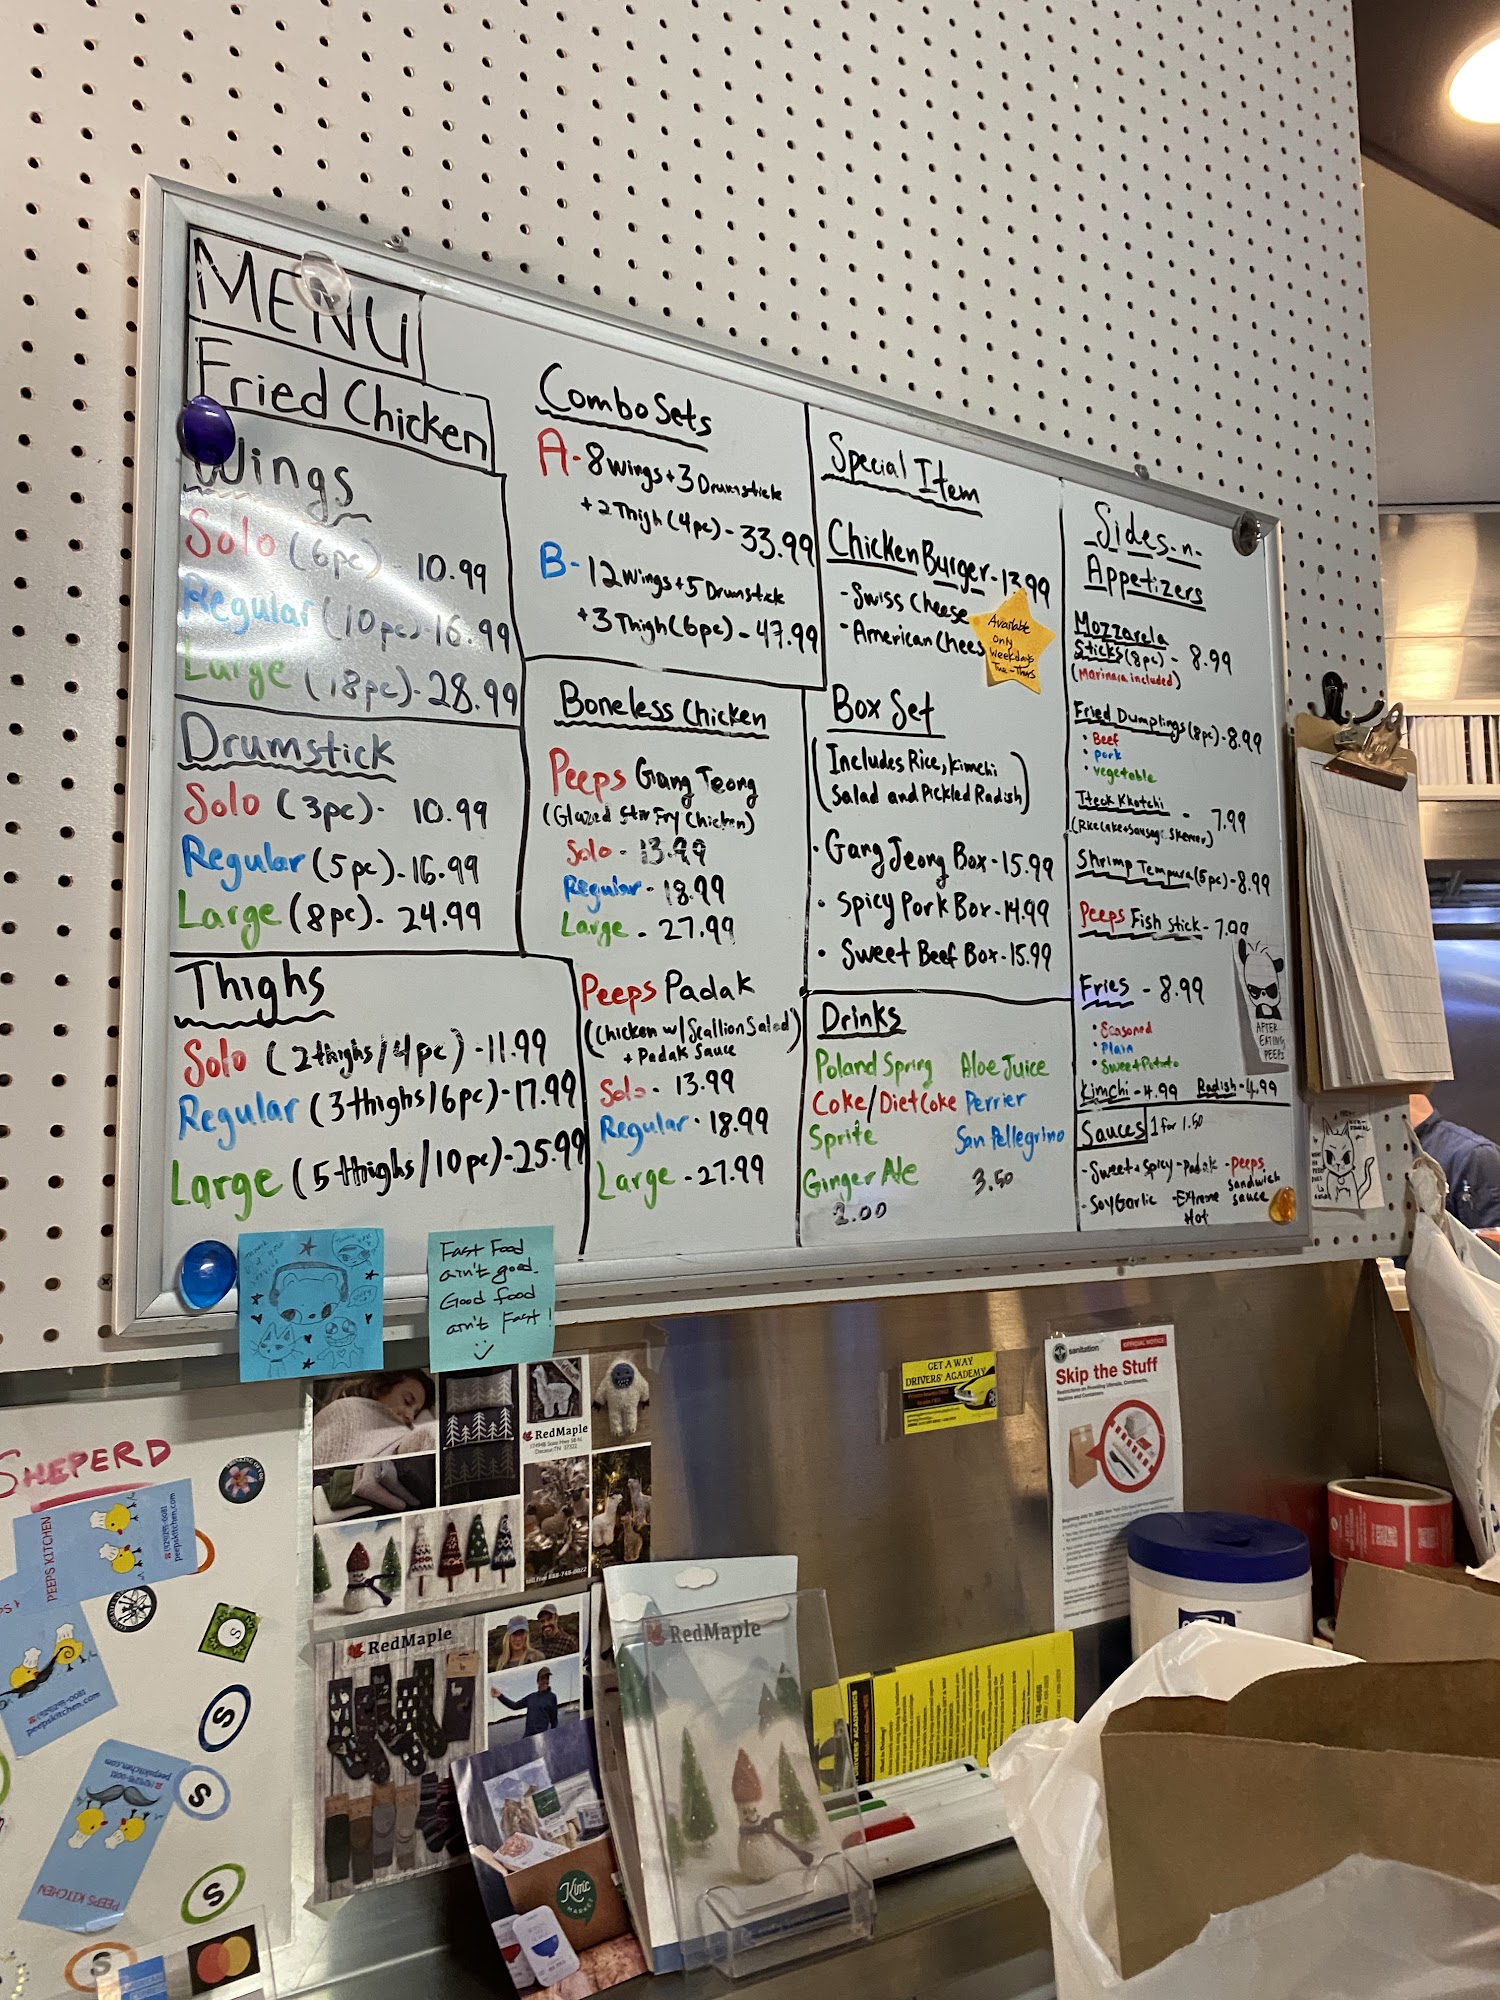 MENU
Fried Chicken
Wings
Solo (6pc) - 10.99
Regular (10pc) - 16.99
Large (18pc) - 28.99
Drumstick
Solo (3pc) - 10.99
Regular (5pc) - 16.99
Large (8pc) - 24.99
Thighs
Solo (2 thighs/4pc) - 11.99
Regular (3 thighs/6pc) - 17.99
Large (5 thighs/10pc) - 25.99
Combo Sets
A - 8 wings + 3 Drumstick
+ 2 Thigh (4pc) - 33.99
B - 12 wings + 5 Drumstick
+ 3 Thigh (6pc) - 47.99
Boneless Chicken
Peeps Gang Jeong
(Glazed Stir Fry Chicken)
Solo - 13.99
Regular - 18.99
Large - 27.99
Peeps Padak
(Chicken w/ Scallion Salad)
+ Padak Sauce
Solo - 13.99
Regular - 18.99
Large - 27.99
Special Item
Chicken Burger - 13.99
- Swiss Cheese
- American Chees
Available
only
weekdays
Tue - Thurs
Box Set
(Includes Rice, Kimchi
Salad and Pickled Radish)
• Gang Jeong Box - 15.99
• Spicy Pork Box - 14.99
• Sweet Beef Box - 15.99
Drinks
Poland Spring
Coke/Diet Coke
Sprite
Ginger Ale
2.00
Aloe Juice
Perrier
San Pellegrino
3.50
Sides-n-
Appetizers
Mozzarela
Sticks (8pc) - 8.99
(Marinara included)
Fried Dumplings (8pc) - 8.99
• Beef
• Pork
• Vegetable
Tteok Kkotchi - 7.99
(Rice Cake + Sausage Skewer)
Shrimp Tempura (5pc) - 8.99
Peeps Fish Stick - 7.99
Fries - 8.99
• Seasoned
• Plain
• Sweet Potato
Kimchi - 4.99 Radish - 4.99
Sauces 1 for 1.50
- Sweet & Spicy - Padak - Peeps
sandwich
sauce
- Soy Garlic - Extreme
Hot
AFTER
EATING
PEEPS
Fast Food
ain't good.
Good food
ain't Fast!
SHEPERD
PEEPS KITCHEN
peepskitchen.com
peepskitchen.com
peepskitchen.com
PEEPS KITCHEN
S
S
S
S
S
RedMaple
RedMaple
RedMaple
Kimc
MARKET
GET A WAY
DRIVERS' ACADEMY
sanitation
OFFICIAL NOTICE
Skip the Stuff
Restrictions on Providing Utensils, Condiments,
Napkins and Containers